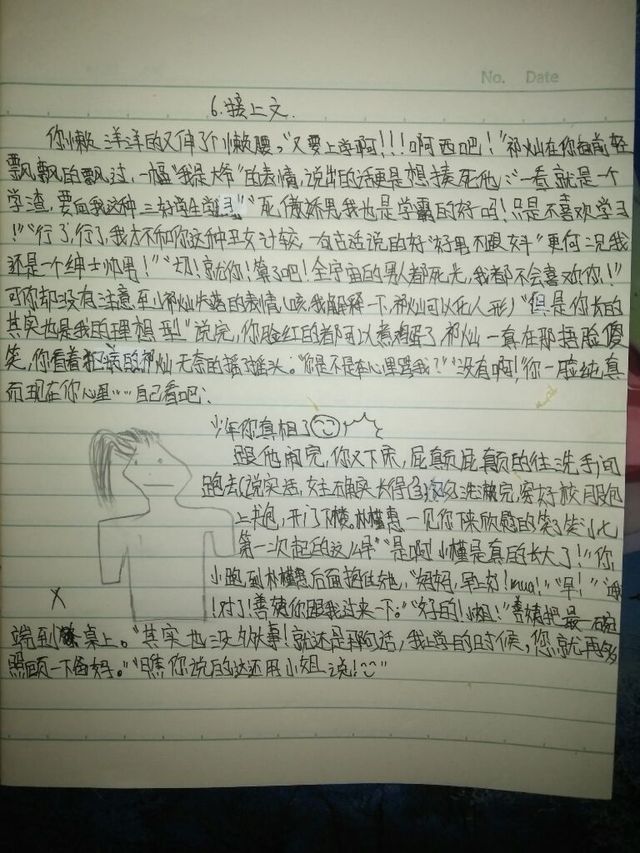 No. Date
6.接上文.
你懒洋洋的又伸了个懒腰。"又要上学啊!!!啊西吧!"祁灿在你面前轻
飘飘的飘过,一幅"我是大爷"的表情,说出的话更是想揍死他:"一看就是一个
学渣,要向我这种三好学生学习""死傲娇男我也是学霸的好吗!只是不喜欢学习
!""行了,行了,我才不和你这种丑女计较,有古话说的好"好男不跟女斗"更何况我
还是一个绅士帅男!""切!就你!算了吧!全宇宙的男人都死光,我都不会喜欢你!"
可你却没有注意到祁灿失落的表情(咳,我解释一下,祁灿可以化人形)"但是你长的
其实也是我的理想型"说完,你脸红的都可以煮鸡蛋了祁灿一直在那捂脸傻
笑,你看着犯病的祁灿无奈的摇摇头。"你是不是在心里骂我?""没有啊!"你一脸纯真
而现在你心里……自己看吧:
少年你真相了
跟他闹完,你又下床,屁颠屁颠的往洗手间
跑去(说实话,女主确实长得)洗漱完,穿好校服背
上书包,开门下楼,林槿惠一见你下来欣慰的笑了笑"小七
第一次起的这么早""是啊小槿是真的长大了!"你
小跑到林槿惠后面抱住她,"妈妈,早上好!mua!""早!""哦
!对了!善姨你跟我过来一下。""好的!小姐!"善姨把最一碗
端到餐桌上。"其实也没多大事!就还是那句话,我上学的时候,您就再多
照顾一下妈妈。""瞧你说的这还用小姐说!